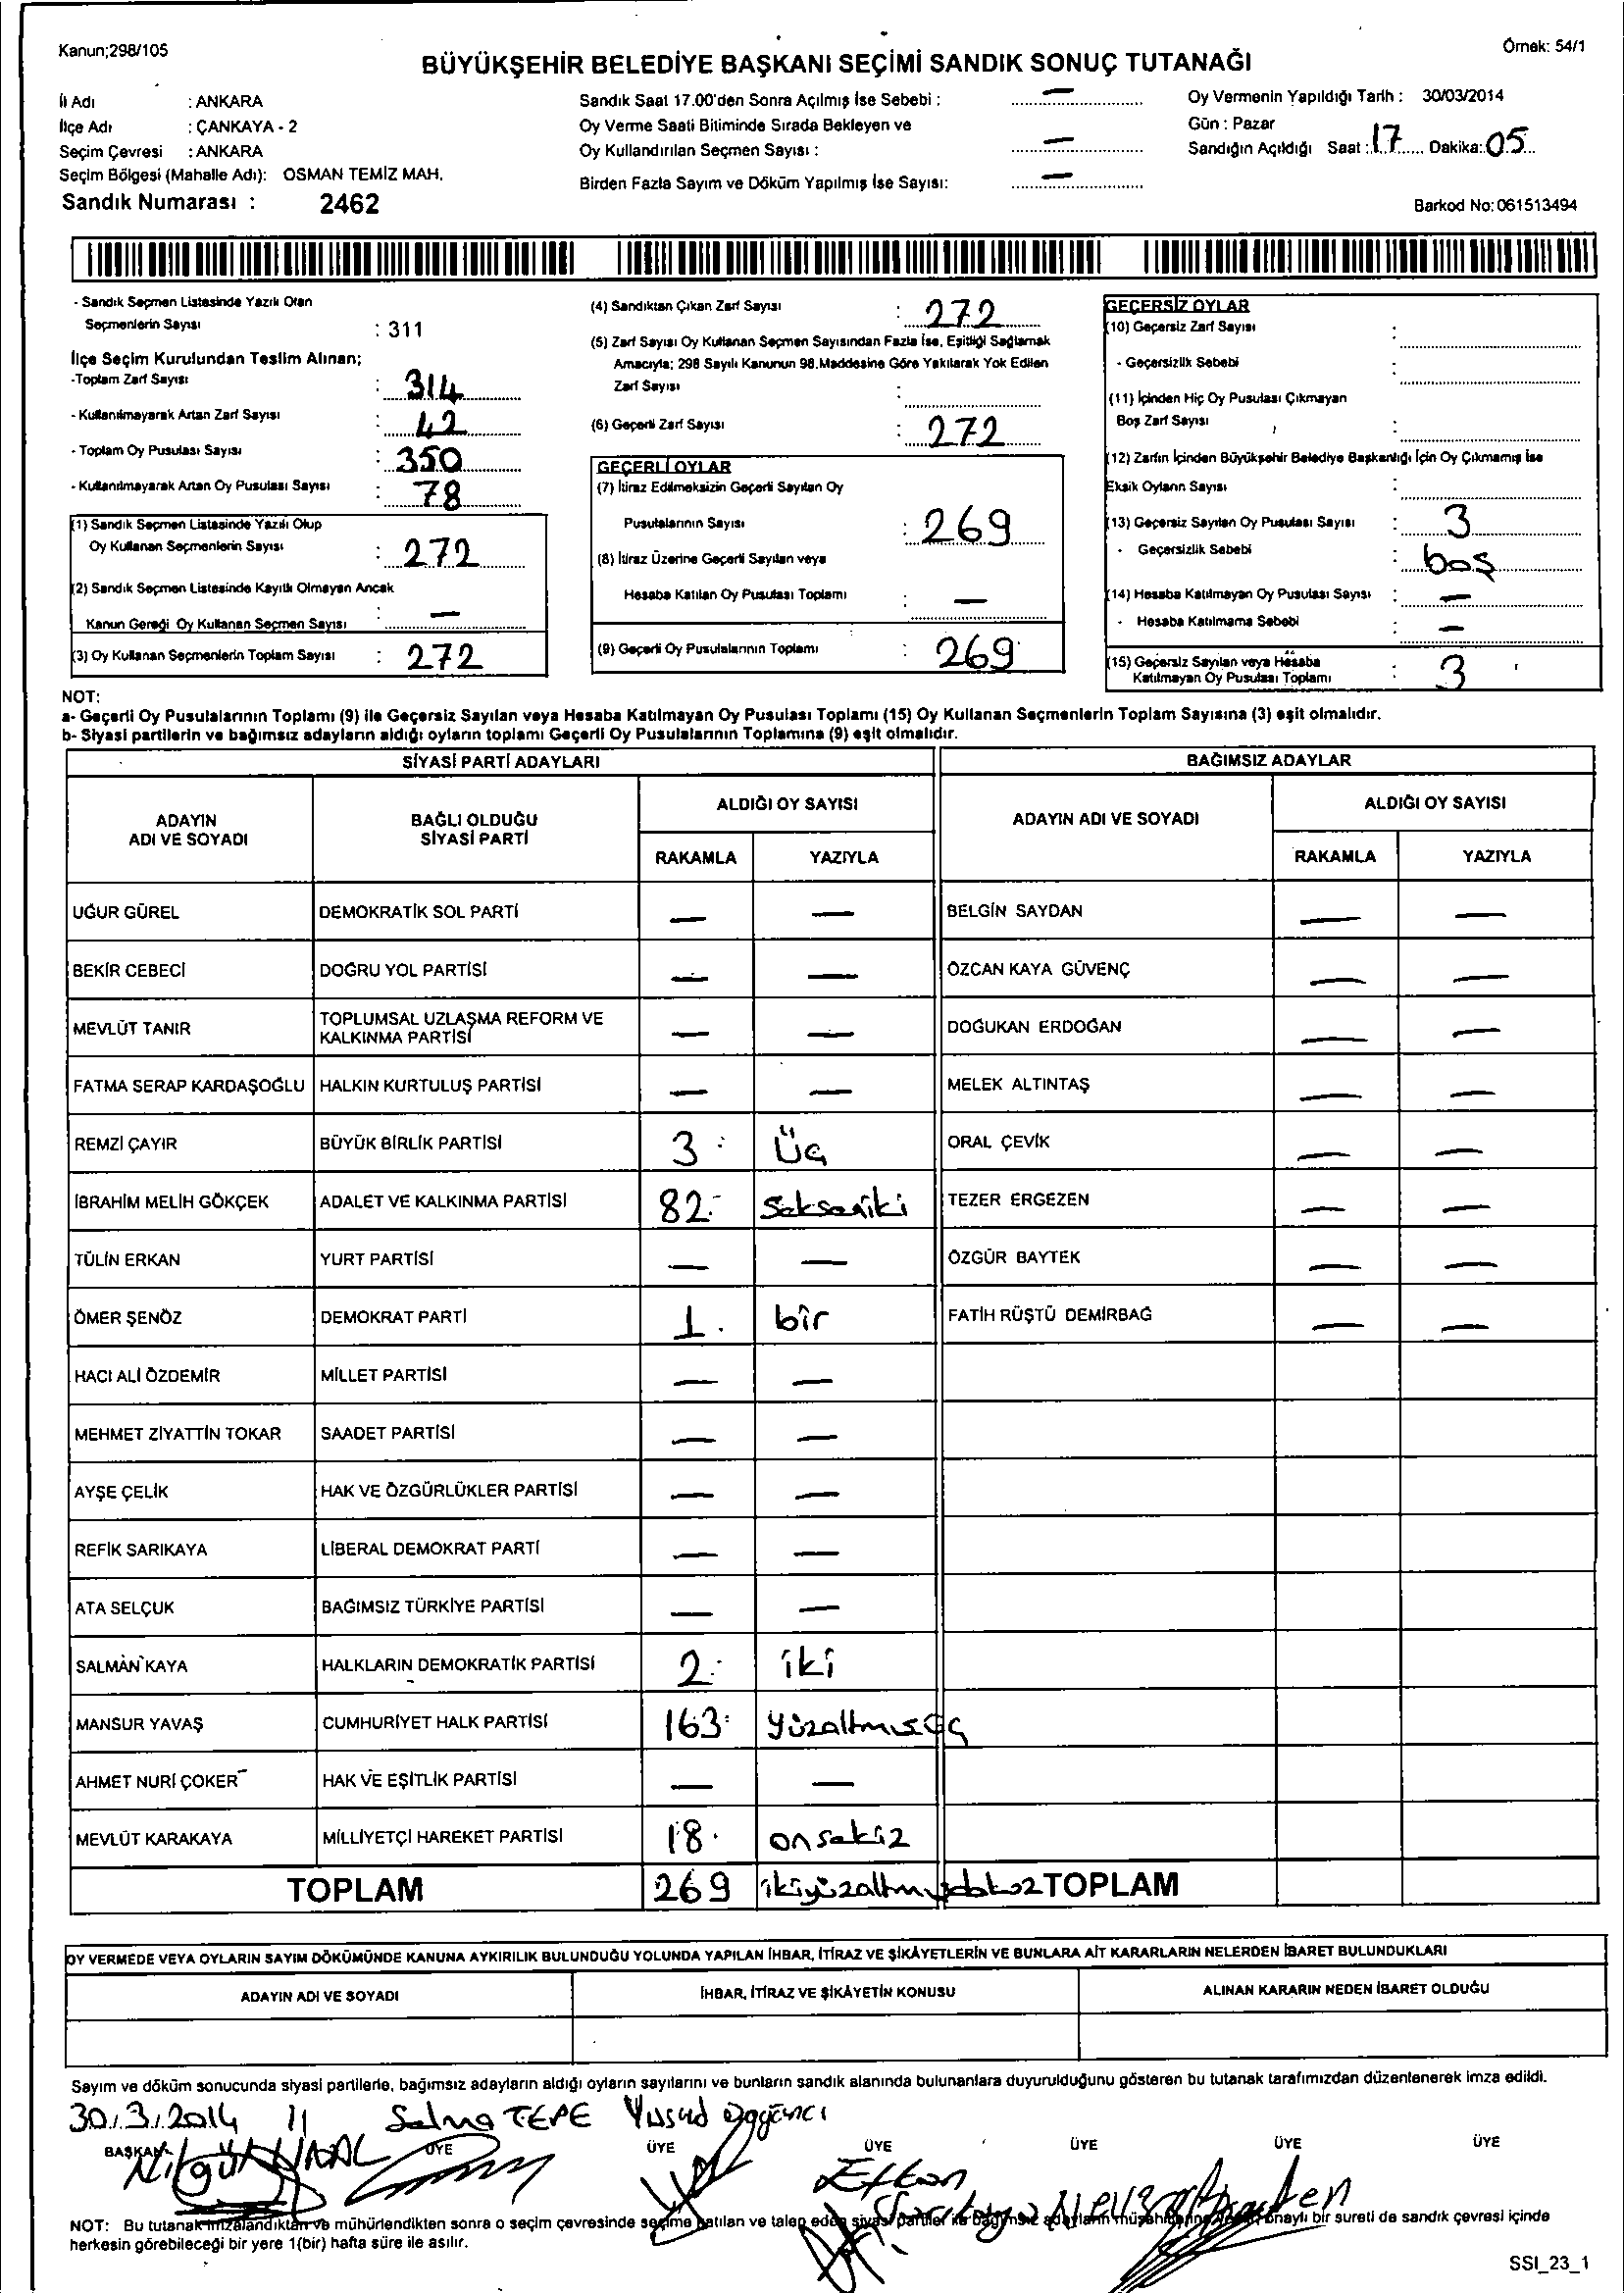 Kanun;298/105
Örnek: 54/1
BÜYÜKŞEHİR BELEDİYE BAŞKANI SEÇİMİ SANDIK SONUÇ TUTANAĞI
İl Adı : ANKARA
İlçe Adı : ÇANKAYA - 2
Seçim Çevresi : ANKARA
Seçim Bölgesi (Mahalle Adı): OSMAN TEMİZ MAH.
Sandık Numarası : 2462
Sandık Saat 17.00'den Sonra Açılmış İse Sebebi : —
Oy Verme Saati Bitiminde Sırada Bekleyen ve
Oy Kullandırılan Seçmen Sayısı : —
Birden Fazla Sayım ve Döküm Yapılmış İse Sayısı: —
Oy Vermenin Yapıldığı Tarih : 30/03/2014
Gün : Pazar
Sandığın Açıldığı Saat : 17 Dakika: 05
Barkod No: 061513494
- Sandık Seçmen Listesinde Yazılı Olan
Seçmenlerin Sayısı : 311
İlçe Seçim Kurulundan Teslim Alınan;
-Toplam Zarf Sayısı : 314
- Kullanılmayarak Artan Zarf Sayısı : 42
- Toplam Oy Pusulası Sayısı : 350
- Kullanılmayarak Artan Oy Pusulası Sayısı : 78
(1) Sandık Seçmen Listesinde Yazılı Olup
Oy Kullanan Seçmenlerin Sayısı : 272
(2) Sandık Seçmen Listesinde Kayıtlı Olmayan Ancak
Kanun Gereği Oy Kullanan Seçmen Sayısı : —
(3) Oy Kullanan Seçmenlerin Toplam Sayısı : 272
(4) Sandıktan Çıkan Zarf Sayısı : 272
(5) Zarf Sayısı Oy Kullanan Seçmen Sayısından Fazla İse, Eşitliği Sağlamak
Amacıyla; 298 Sayılı Kanunun 98.Maddesine Göre Yakılarak Yok Edilen
Zarf Sayısı :
(6) Geçerli Zarf Sayısı : 272
GEÇERLİ OYLAR
(7) İtiraz Edilmeksizin Geçerli Sayılan Oy
Pusulalarının Sayısı : 269
(8) İtiraz Üzerine Geçerli Sayılan veya
Hesaba Katılan Oy Pusulası Toplamı : —
(9) Geçerli Oy Pusulalarının Toplamı : 269
GEÇERSİZ OYLAR
(10) Geçersiz Zarf Sayısı :
- Geçersizlik Sebebi :
(11) İçinden Hiç Oy Pusulası Çıkmayan
Boş Zarf Sayısı :
(12) Zarfın İçinden Büyükşehir Belediye Başkanlığı İçin Oy Çıkmamış İse
Eksik Oyların Sayısı :
(13) Geçersiz Sayılan Oy Pusulası Sayısı : 3
- Geçersizlik Sebebi : boş
(14) Hesaba Katılmayan Oy Pusulası Sayısı : —
- Hesaba Katılmama Sebebi : —
(15) Geçersiz Sayılan veya Hesaba
Katılmayan Oy Pusulası Toplamı : 3
NOT:
a- Geçerli Oy Pusulalarının Toplamı (9) ile Geçersiz Sayılan veya Hesaba Katılmayan Oy Pusulası Toplamı (15) Oy Kullanan Seçmenlerin Toplam Sayısına (3) eşit olmalıdır.
b- Siyasi partilerin ve bağımsız adayların aldığı oyların toplamı Geçerli Oy Pusulalarının Toplamına (9) eşit olmalıdır.
SİYASİ PARTİ ADAYLARI BAĞIMSIZ ADAYLAR
ADAYIN ADI VE SOYADI BAĞLI OLDUĞU SİYASİ PARTİ ALDIĞI OY SAYISI ADAYIN ADI VE SOYADI ALDIĞI OY SAYISI
RAKAMLA YAZIYLA RAKAMLA YAZIYLA
UĞUR GÜREL DEMOKRATİK SOL PARTİ — — BELGİN SAYDAN — —
BEKİR CEBECİ DOĞRU YOL PARTİSİ — — ÖZCAN KAYA GÜVENÇ — —
MEVLÜT TANIR TOPLUMSAL UZLAŞMA REFORM VE KALKINMA PARTİSİ — — DOĞUKAN ERDOĞAN — —
FATMA SERAP KARDAŞOĞLU HALKIN KURTULUŞ PARTİSİ — — MELEK ALTINTAŞ — —
REMZİ ÇAYIR BÜYÜK BİRLİK PARTİSİ 3 üç ORAL ÇEVİK — —
İBRAHİM MELİH GÖKÇEK ADALET VE KALKINMA PARTİSİ 82 Seksaniki TEZER ERGEZEN — —
TÜLİN ERKAN YURT PARTİSİ — — ÖZGÜR BAYTEK — —
ÖMER ŞENÖZ DEMOKRAT PARTİ 1 bir FATİH RÜŞTÜ DEMİRBAĞ — —
HACI ALİ ÖZDEMİR MİLLET PARTİSİ — —
MEHMET ZİYATTİN TOKAR SAADET PARTİSİ — —
AYŞE ÇELİK HAK VE ÖZGÜRLÜKLER PARTİSİ — —
REFİK SARIKAYA LİBERAL DEMOKRAT PARTİ — —
ATA SELÇUK BAĞIMSIZ TÜRKİYE PARTİSİ — —
SALMAN KAYA HALKLARIN DEMOKRATİK PARTİSİ 2 iki
MANSUR YAVAŞ CUMHURİYET HALK PARTİSİ 163 yüzaltmışüç
AHMET NURİ ÇOKER HAK VE EŞİTLİK PARTİSİ — —
MEVLÜT KARAKAYA MİLLİYETÇİ HAREKET PARTİSİ 18 onsekiz
TOPLAM 269 ikiyüzaltmışdokuz TOPLAM
OY VERMEDE VEYA OYLARIN SAYIM DÖKÜMÜNDE KANUNA AYKIRILIK BULUNDUĞU YOLUNDA YAPILAN İHBAR, İTİRAZ VE ŞİKÂYETLERİN VE BUNLARA AİT KARARLARIN NELERDEN İBARET BULUNDUKLARI
ADAYIN ADI VE SOYADI İHBAR, İTİRAZ VE ŞİKÂYETİN KONUSU ALINAN KARARIN NEDEN İBARET OLDUĞU
Sayım ve döküm sonucunda siyasi partilerle, bağımsız adayların aldığı oyların sayılarını ve bunların sandık alanında bulunanlara duyurulduğunu gösteren bu tutanak tarafımızdan düzenlenerek imza edildi.
30.3.2014 Selma TEPE Yusuf
BAŞKAN ÜYE ÜYE ÜYE ÜYE ÜYE ÜYE
Nilgün ÜNAL
NOT: Bu tutanak imzalandıktan ve mühürlendikten sonra o seçim çevresinde seçime katılan ve talep eden siyasi partiler ile bağımsız adayların müşahitlerine onaylı bir sureti de sandık çevresi içinde
herkesin görebileceği bir yere 1(bir) hafta süre ile asılır.
SSI_23_1